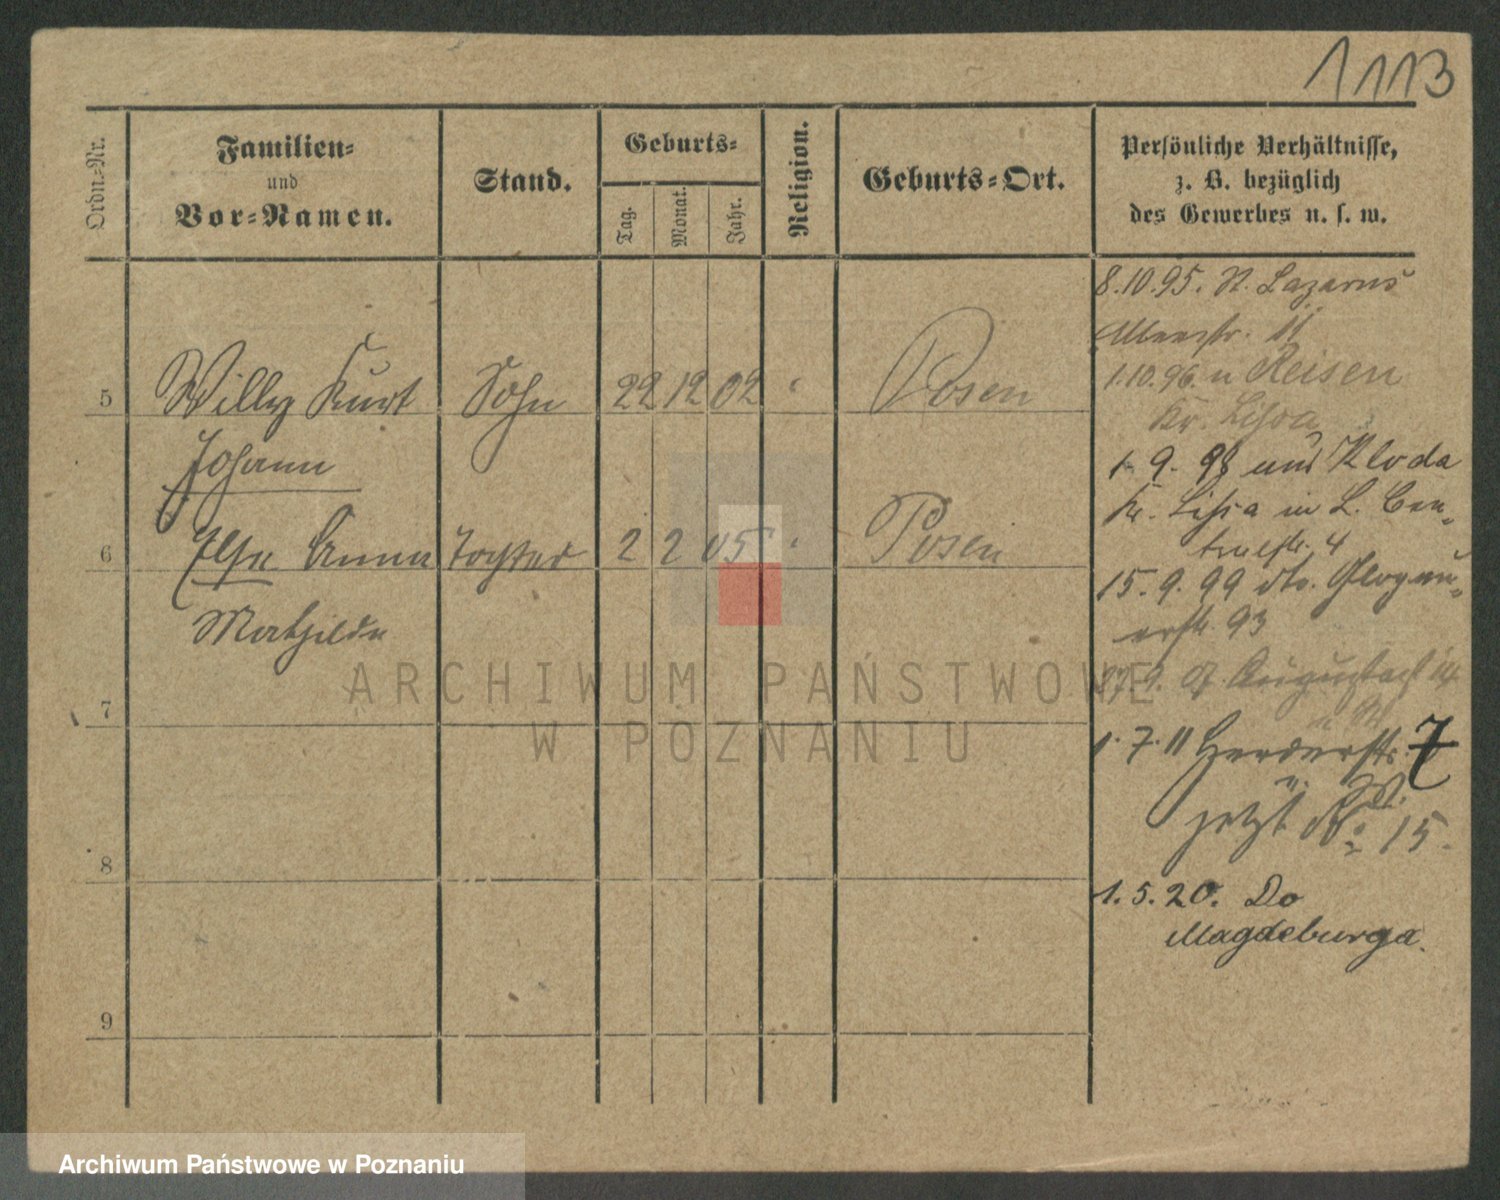 1113
Ordn.-Nr.
Familien-
und
Vor-Namen.
Stand.
Geburts-
Tag.
Monat.
Jahr.
Religion.
Geburts-Ort.
Persönliche Verhältnisse,
z. B. bezüglich
des Gewerbes u. s. w.
8.10.95. St. Lazarus
11
1.10.96. n Reisen
Kr. Lissa
1. 9. 98 aus Kloda
Kr. Lissa in L. Cen-
tralstr. 4
15. 9. 99 dto. Glogau-
erstr. 93
9. 07. Augustastr 14
1. 7. 11 Herderstr. 7
jetzt No 15.
1. 5. 20. Do
Magdeburga.
5 Willy Kurt Sohn 22 12 02 " Posen
Johann
6 Else Anna Tochter 2 2 05 " Posen
Mathilde
7
8
9
ARCHIWUM PAŃSTWOWE
W POZNANIU
Archiwum Państwowe w Poznaniu